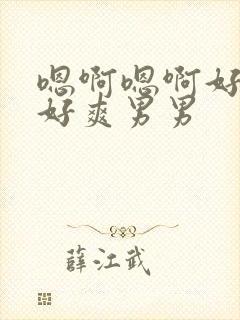 嗯啊嗯啊好
好爽男男
薛江武